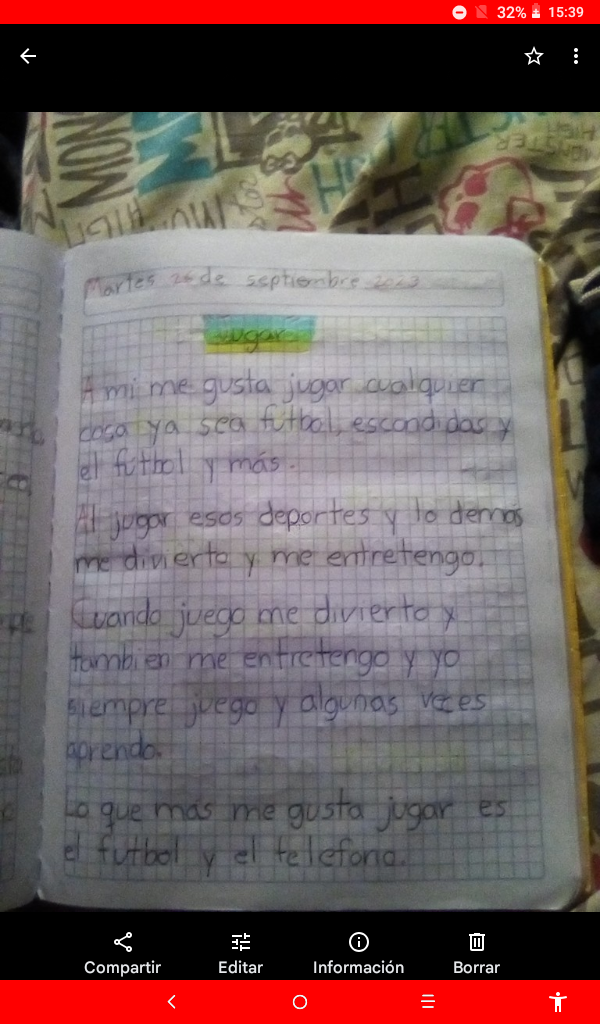 32% 15:39
MONSTER HIGH
Martes 26 de septiembre 2023
Jugar
A mi me gusta jugar cualquier
cosa ya sea futbol, escondidas y
el futbol y más.
Al jugar esos deportes y lo demás
me divierto y me entretengo.
Cuando juego me divierto y
tambien me entretengo y yo
siempre juego y algunas veces
aprendo.
Lo que más me gusta jugar es
el futbol y el telefono.
Compartir Editar Información Borrar